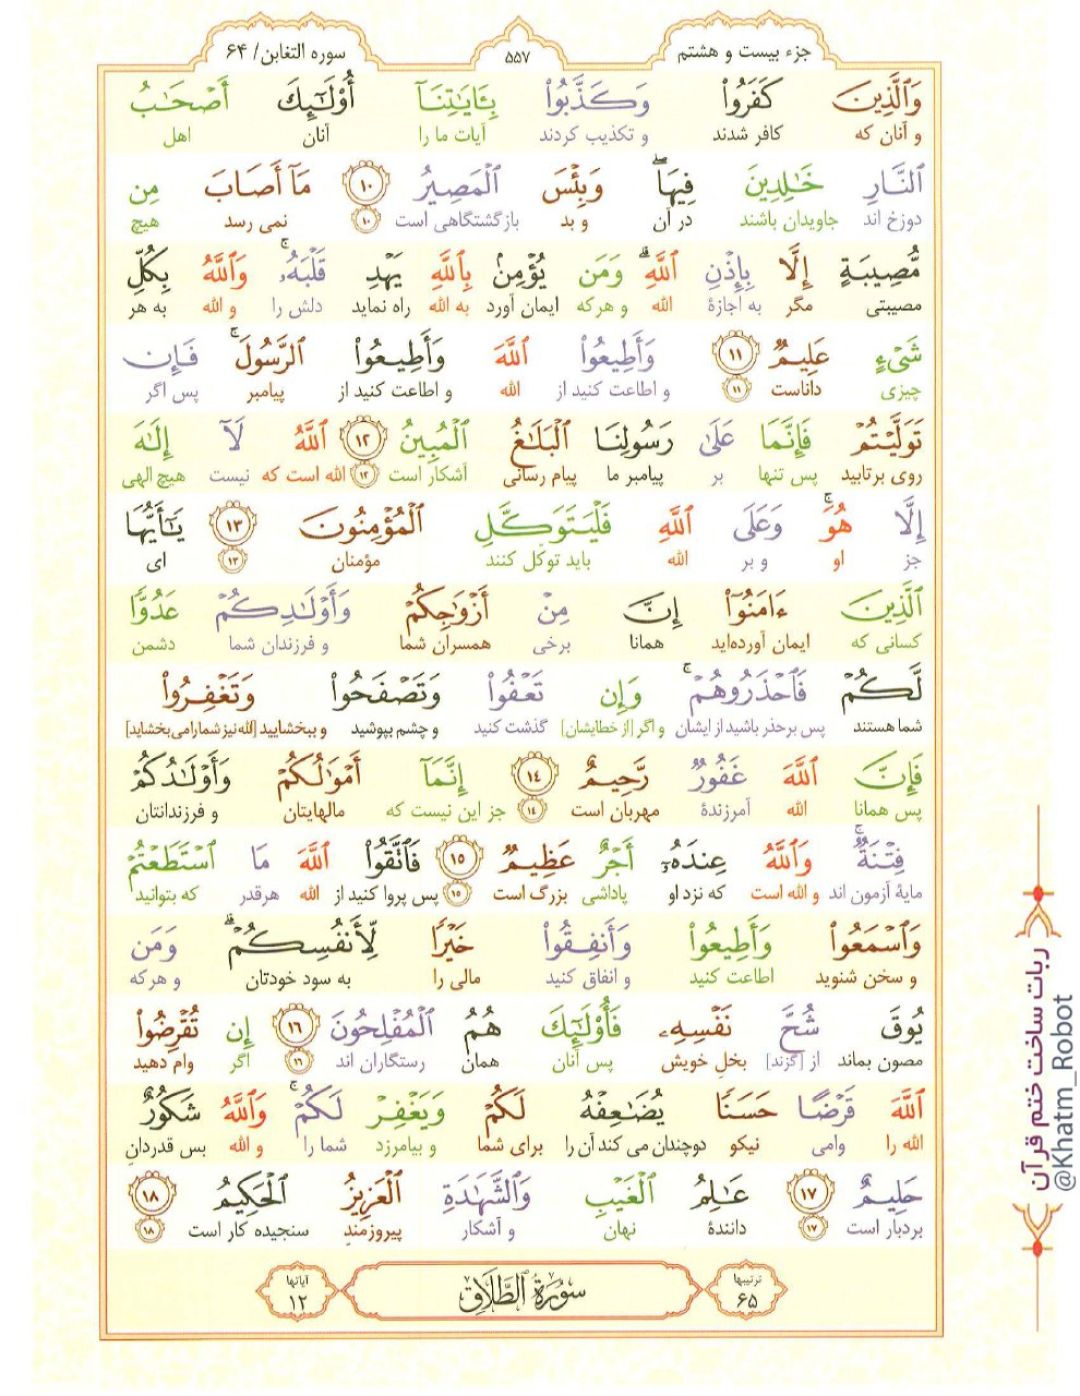 جزء بیست و هشتم
۵۵۷
سوره التغابن/ ۶۴
وَٱلَّذِينَ كَفَرُوا۟ وَكَذَّبُوا۟ بِـَٔايَـٰتِنَآ أُو۟لَـٰٓئِكَ أَصْحَـٰبُ
و آنان که کافر شدند و تکذیب کردند آیات ما را آنان اهل
ٱلنَّارِ خَـٰلِدِينَ فِيهَا ۖ وَبِئْسَ ٱلْمَصِيرُ ۱۰ مَآ أَصَابَ مِن
دوزخ اند جاویدان باشند در آن و بد بازگشتگاهی است ۱۰ نمی رسد هیچ
مُّصِيبَةٍ إِلَّا بِإِذْنِ ٱللَّهِ ۗ وَمَن يُؤْمِنۢ بِٱللَّهِ يَهْدِ قَلْبَهُۥ ۚ وَٱللَّهُ بِكُلِّ
مصیبتی مگر به اجازهٔ الله و هرکه ایمان آورد به الله راه نماید دلش را و الله به هر
شَىْءٍ عَلِيمٌ ۱۱ وَأَطِيعُوا۟ ٱللَّهَ وَأَطِيعُوا۟ ٱلرَّسُولَ ۚ فَإِن
چیزی داناست ۱۱ و اطاعت کنید از الله و اطاعت کنید از پیامبر پس اگر
تَوَلَّيْتُمْ فَإِنَّمَا عَلَىٰ رَسُولِنَا ٱلْبَلَـٰغُ ٱلْمُبِينُ ۱۲ ٱللَّهُ لَآ إِلَـٰهَ
روی برتابید پس تنها بر پیامبر ما پیام رسانی آشکار است ۱۲ الله است که نیست هیچ الهی
إِلَّا هُوَ ۚ وَعَلَى ٱللَّهِ فَلْيَتَوَكَّلِ ٱلْمُؤْمِنُونَ ۱۳ يَـٰٓأَيُّهَا
جز او و بر الله باید توکل کنند مؤمنان ۱۳ ای
ٱلَّذِينَ ءَامَنُوٓا۟ إِنَّ مِنْ أَزْوَٰجِكُمْ وَأَوْلَـٰدِكُمْ عَدُوًّا
کسانی که ایمان آورده‌اید همانا برخی همسران شما و فرزندان شما دشمن
لَّكُمْ فَٱحْذَرُوهُمْ ۚ وَإِن تَعْفُوا۟ وَتَصْفَحُوا۟ وَتَغْفِرُوا۟
شما هستند پس برحذر باشید از ایشان و اگر [از خطایشان] گذشت کنید و چشم بپوشید و ببخشایید [الله نیز شما را می بخشاید]
فَإِنَّ ٱللَّهَ غَفُورٌ رَّحِيمٌ ۱۴ إِنَّمَآ أَمْوَٰلُكُمْ وَأَوْلَـٰدُكُمْ
پس همانا الله آمرزندهٔ مهربان است ۱۴ جز این نیست که مالهایتان و فرزندانتان
فِتْنَةٌ ۚ وَٱللَّهُ عِندَهُۥٓ أَجْرٌ عَظِيمٌ ۱۵ فَٱتَّقُوا۟ ٱللَّهَ مَا ٱسْتَطَعْتُمْ
مایهٔ آزمون اند و الله است که نزد او پاداشی بزرگ است ۱۵ پس پروا کنید از الله هرقدر که بتوانید
وَٱسْمَعُوا۟ وَأَطِيعُوا۟ وَأَنفِقُوا۟ خَيْرًا لِّأَنفُسِكُمْ ۗ وَمَن
و سخن شنوید اطاعت کنید و انفاق کنید مالی را به سود خودتان و هرکه
يُوقَ شُحَّ نَفْسِهِۦ فَأُو۟لَـٰٓئِكَ هُمُ ٱلْمُفْلِحُونَ ۱۶ إِن تُقْرِضُوا۟
مصون بماند از [گزند] بخل خویش پس آنان همان رستگاران اند ۱۶ اگر وام دهید
ٱللَّهَ قَرْضًا حَسَنًا يُضَـٰعِفْهُ لَكُمْ وَيَغْفِرْ لَكُمْ ۚ وَٱللَّهُ شَكُورٌ
الله را وامی نیکو دوچندان می کند آن را برای شما و بیامرزد شما را و الله بس قدردانِ
حَلِيمٌ ۱۷ عَـٰلِمُ ٱلْغَيْبِ وَٱلشَّهَـٰدَةِ ٱلْعَزِيزُ ٱلْحَكِيمُ ۱۸
بردبار است ۱۷ دانندهٔ نهان و آشکار پیروزمندِ سنجیده کار است ۱۸
ترتیبها ۶۵
سُورَةُ ٱلطَّلَاقِ
آیاتها ۱۲
ربات ساخت ختم قرآن
@Khatm_Robot